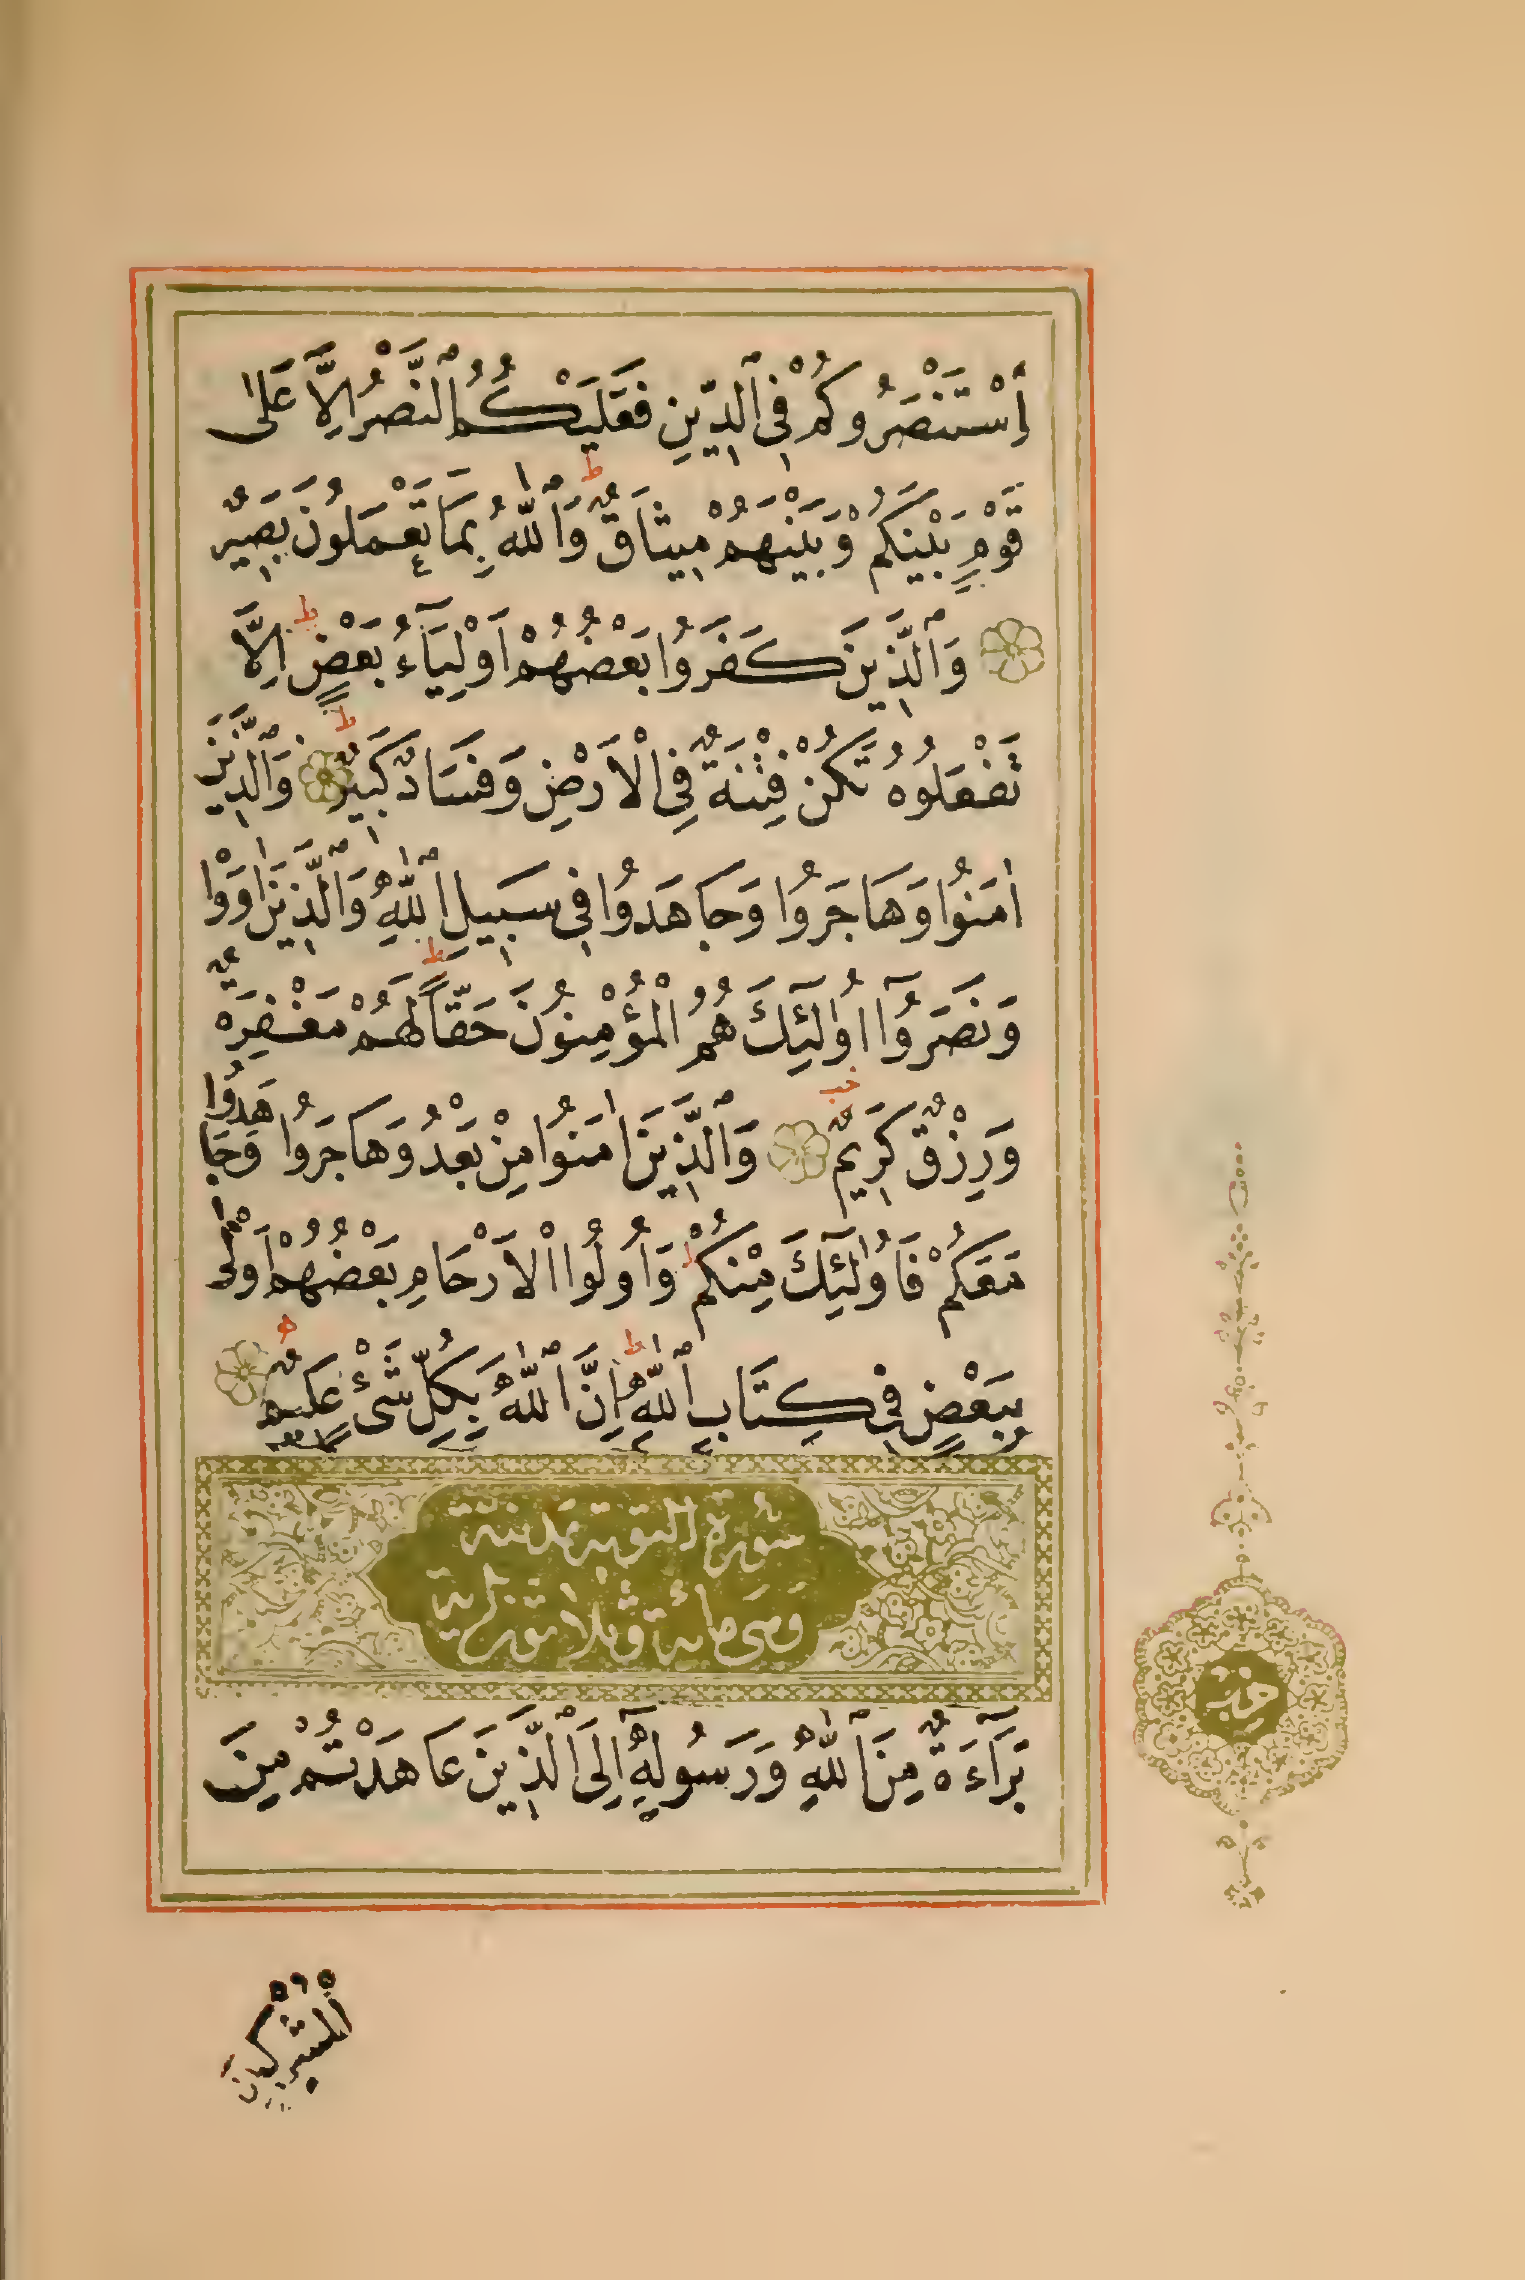 اِسْتَنْصَرُوكُمْ فِي ٱلدِّينِ فَعَلَيْكُمُ ٱلنَّصْرُ اِلَّا عَلٰى
قَوْمٍ بَيْنَكُمْ وَبَيْنَهُمْ مِيثَاقٌ ط وَٱللّٰهُ بِمَا تَعْمَلُونَ بَصِيرٌ
وَٱلَّذِينَ كَفَرُوا بَعْضُهُمْ اَوْلِيَآءُ بَعْضٍ ط اِلَّا
تَفْعَلُوهُ تَكُنْ فِتْنَةٌ فِي الْاَرْضِ وَفَسَادٌ كَبِيرٌ ط وَٱلَّذِينَ
اٰمَنُوا وَهَاجَرُوا وَجَاهَدُوا فِي سَبِيلِ ٱللّٰهِ وَٱلَّذِينَ اٰوَوْا
وَنَصَرُوٓا اُولٰٓئِكَ هُمُ الْمُؤْمِنُونَ حَقًّا ط لَهُمْ مَغْفِرَةٌ
وَرِزْقٌ كَرِيمٌ وَٱلَّذِينَ اٰمَنُوا مِنْ بَعْدُ وَهَاجَرُوا وَجَاهَدُوا
مَعَكُمْ فَاُولٰٓئِكَ مِنْكُمْ ط وَاُولُوا الْاَرْحَامِ بَعْضُهُمْ اَوْلٰى
بِبَعْضٍ فِي كِتَابِ ٱللّٰهِ ط اِنَّ ٱللّٰهَ بِكُلِّ شَيْءٍ عَلِيمٌ
سورة التوبة مدنية
وهى مائة وثلاثون اية
بَرَآءَةٌ مِنَ ٱللّٰهِ وَرَسُولِهِٓ اِلَى ٱلَّذِينَ عَاهَدْتُمْ مِنَ
حزب
الْمُشْرِكِينَ